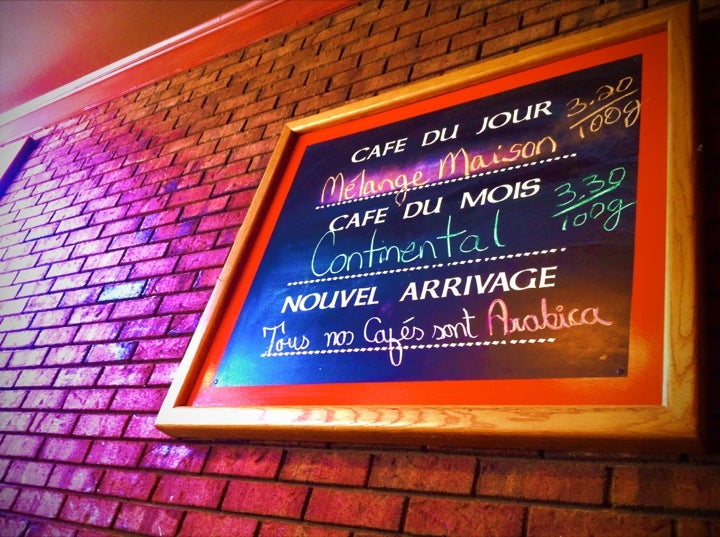 CAFE DU JOUR 3.20/100g
Mélange Maison
CAFE DU MOIS 3.30/100g
Continental
NOUVEL ARRIVAGE
Tous nos Cafés sont Arabica